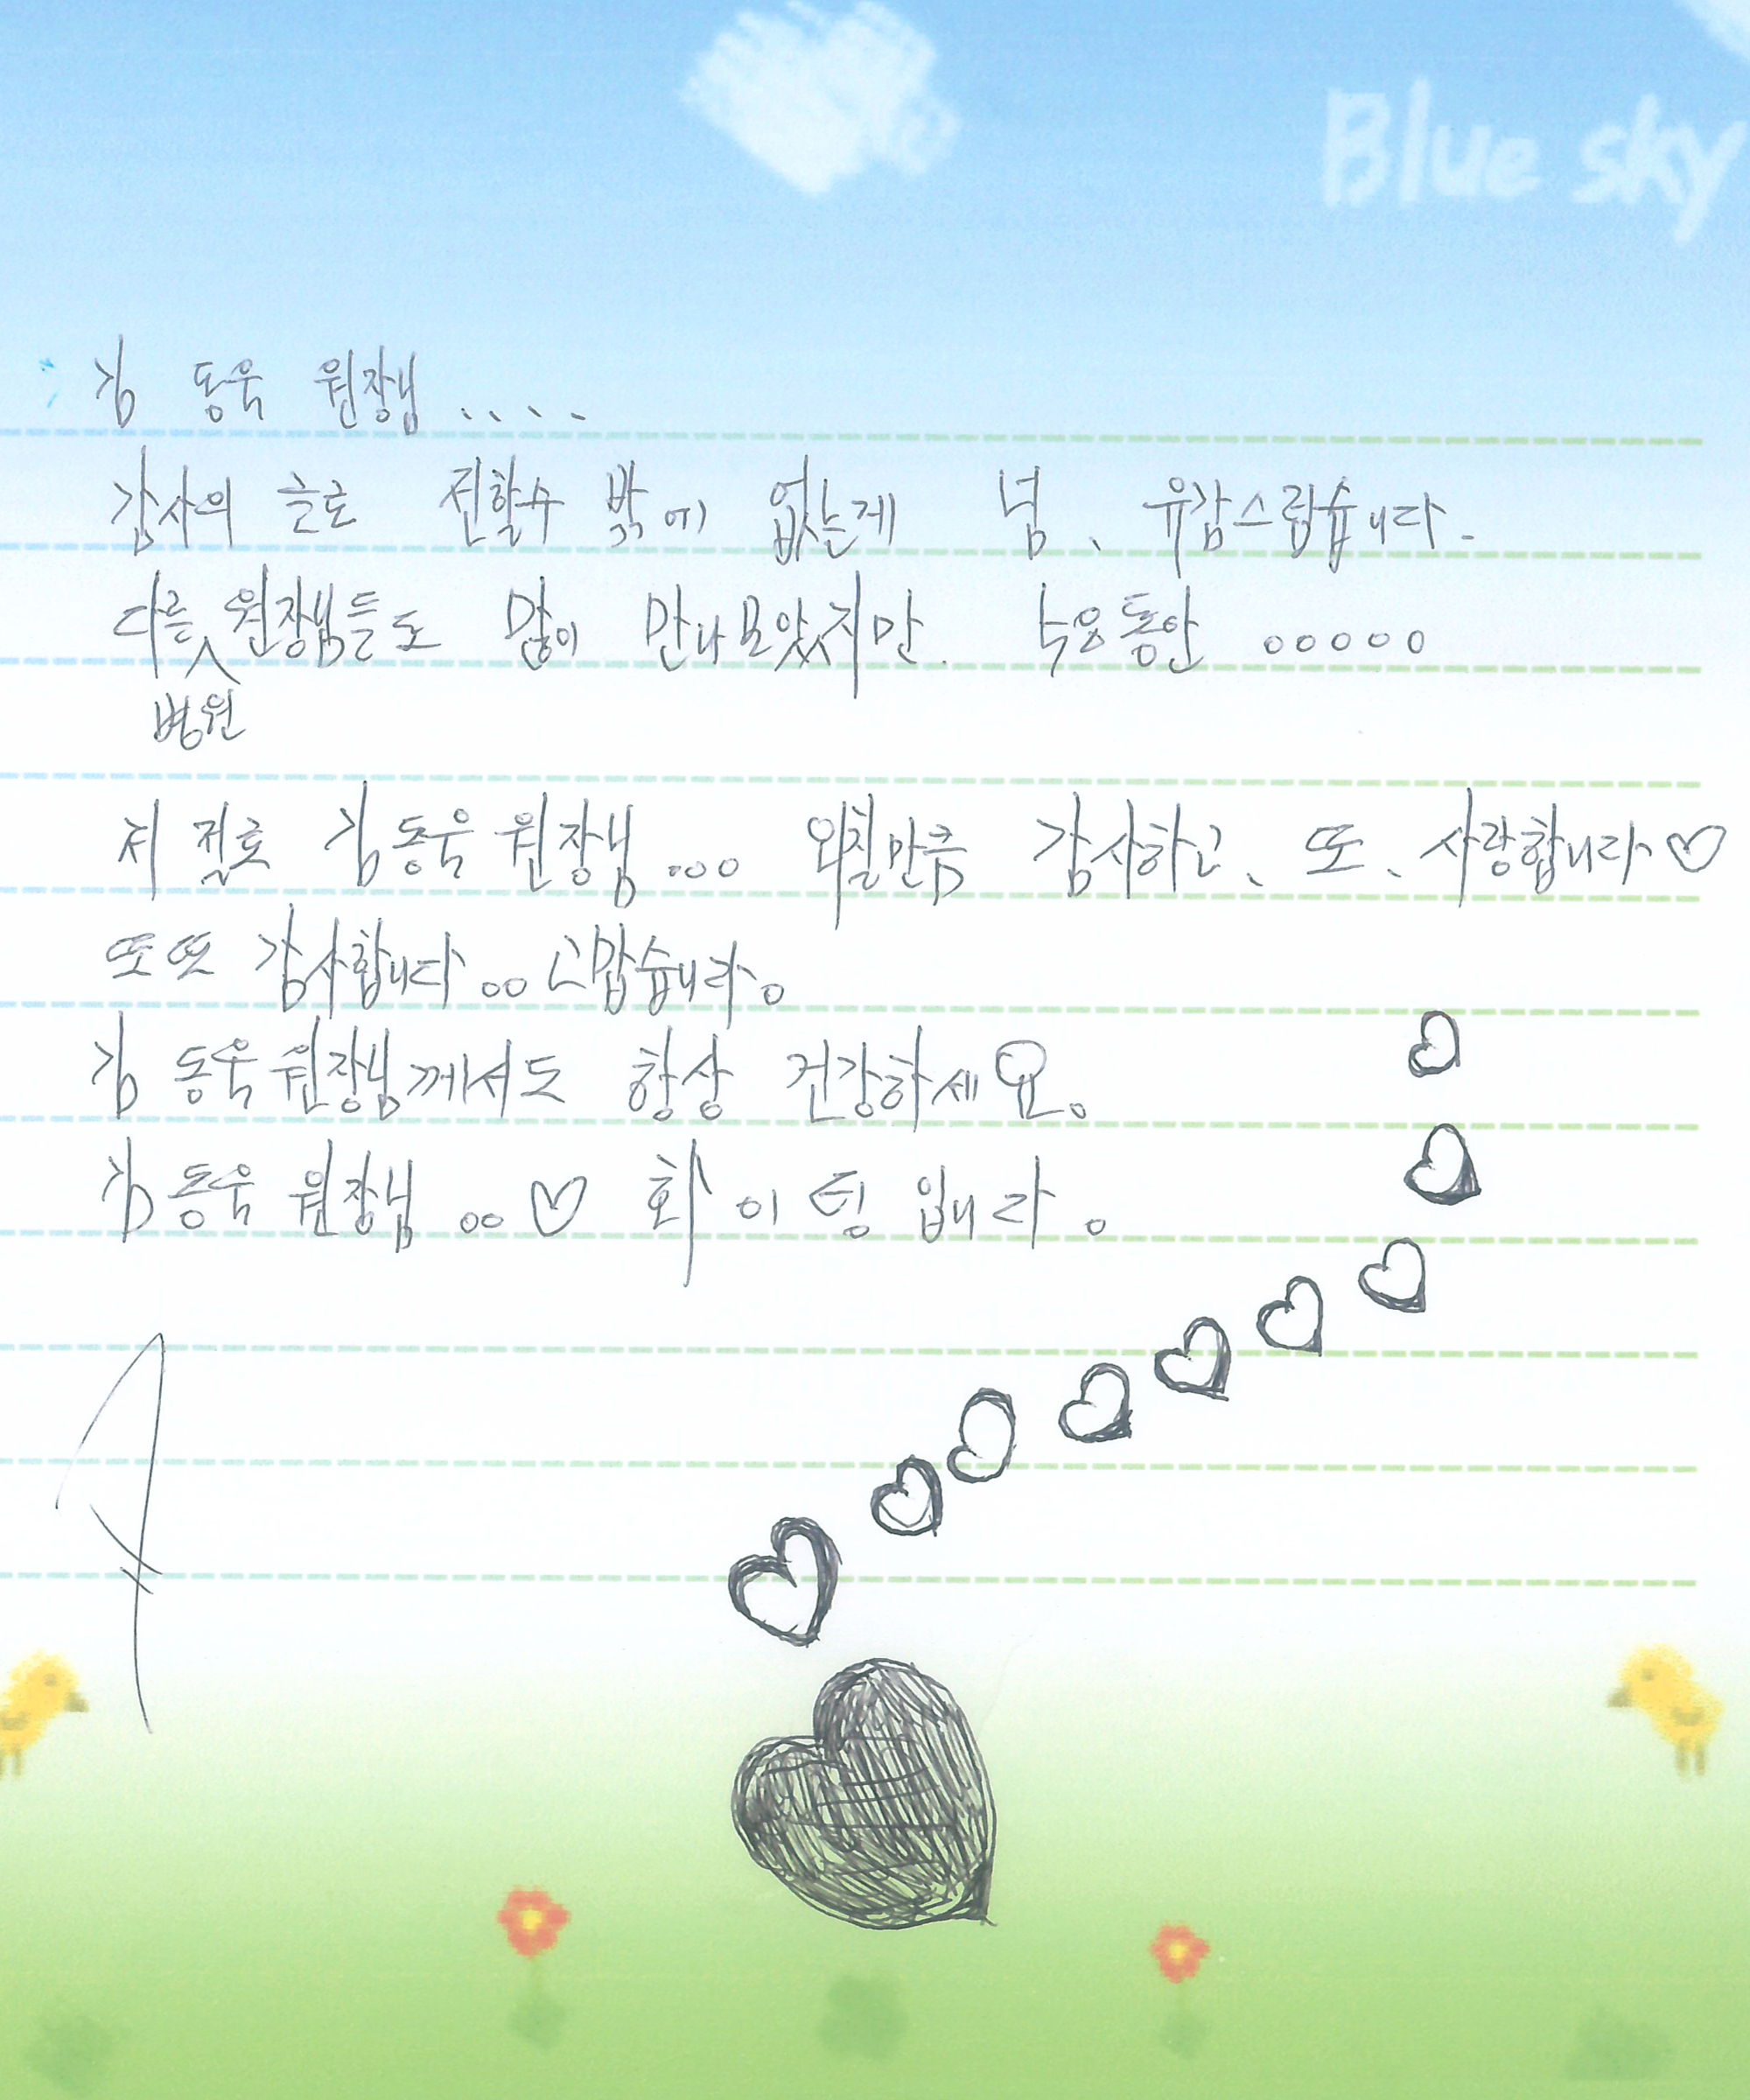 Blue sky
김 동욱 원장님 ....
감사의 글로 전할수 밖에 없는게 넘、 유감스럽습니다.
다른 원장님들도 많이 만나보았지만. 。。。。。
병원
저절로 김동욱 원장님 ... 외칠만큼 감사하고、 또、 사랑합니다♡
또또 감사합니다.. 고맙습니다。
김 동욱 원장님께서도 항상 건강하세요。
김 동욱 원장님 ..♡ 화이팅 입니다。